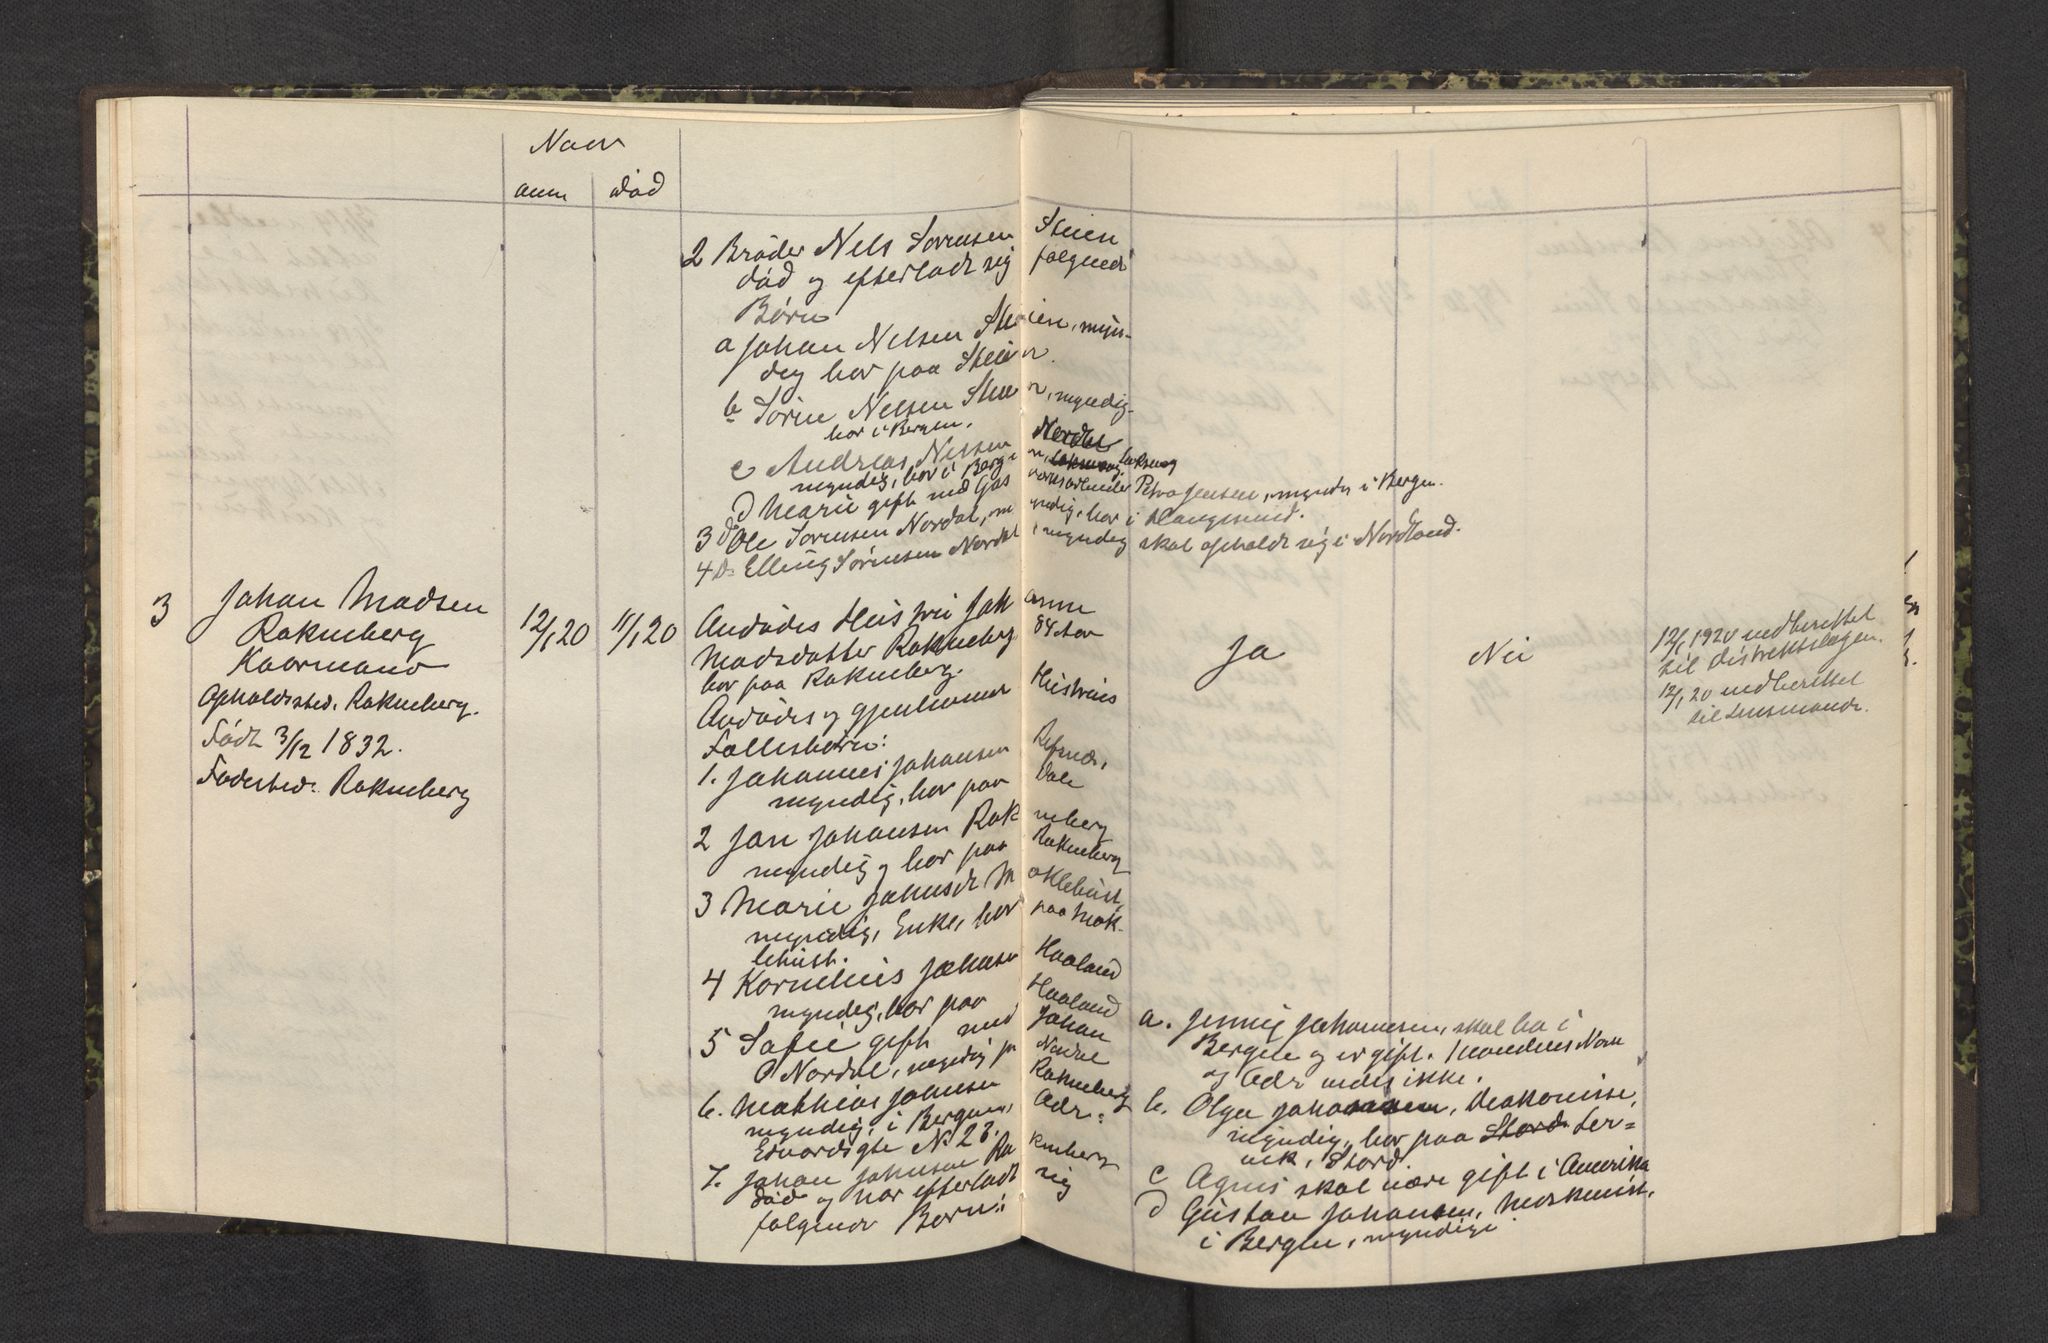 Naar
anm død
2 Brøder Nels Sørensen Steien
død og efterladt sig følgende
Børn
a Johan Nelsen Steien, myn-
dig bor paa Steien.
b Sørin Nelsen Steien, myndig
bor i Bergen.
c Andreas Nilsen Nordal
myndig, bor i Bergen, Laksevaag
d Marie gift med Gasverksarbeider Petra Jensen, myndig i Bergen.
3 Do Ole Sørensen Nordal, myndig, bor i Haugesund.
4 Do Elling Sørensen Nordal, myndig skal opholde sig i Nordland.
3 Johan Madsen
Rakneberg
Kaarmand
Opholdssted. Rakneberg.
Født 3/12 1832.
Fødested: Rakneberg
12/1 20
11/1 20
Avdødes Hustru Johanne
Madsdatter Rakneberg 84 Aar
bor paa Rakneberg.
Avdødes og gjenlevende Hustrues
Fællesbørn:
1. Johannes Johansen Refsnæs,
myndig, bor paa Dale
2 Jan Johansen Rakneberg
myndig og bor paa Rakneberg
3 Marie Johnsdt Møklebust,
myndig, Enke, bor paa Møk-
lebust.
4 Kornelius Johnsen Haaland
myndig, bor paa Haaland
5 Sofie gift med Johan
O Nordal, myndig paa Nordal
6. Mathias Johnsen Rakneberg
myndig, i Bergen, Adr:
Edvardsgte No 23.
7. Johan Johnsen Rakneberg
død og har efterladt sig
følgende Børn:
Ja
Nei
12/1 1920 indberettet
til Distriktslægen.
12/1 20 indberettet
til Lensmand.
a. Jenny Johannesen, skal bo i
Bergen og er gift. Mandens Navn
og Adr vides ikke.
b. Olga Johannesen, Diakonisse,
myndig, bor paa Stord Ler=
vik, Stord
c Agnes skal være gift i Amerika
d Gustav Johansen, Maskinist,
i Bergen, myndige